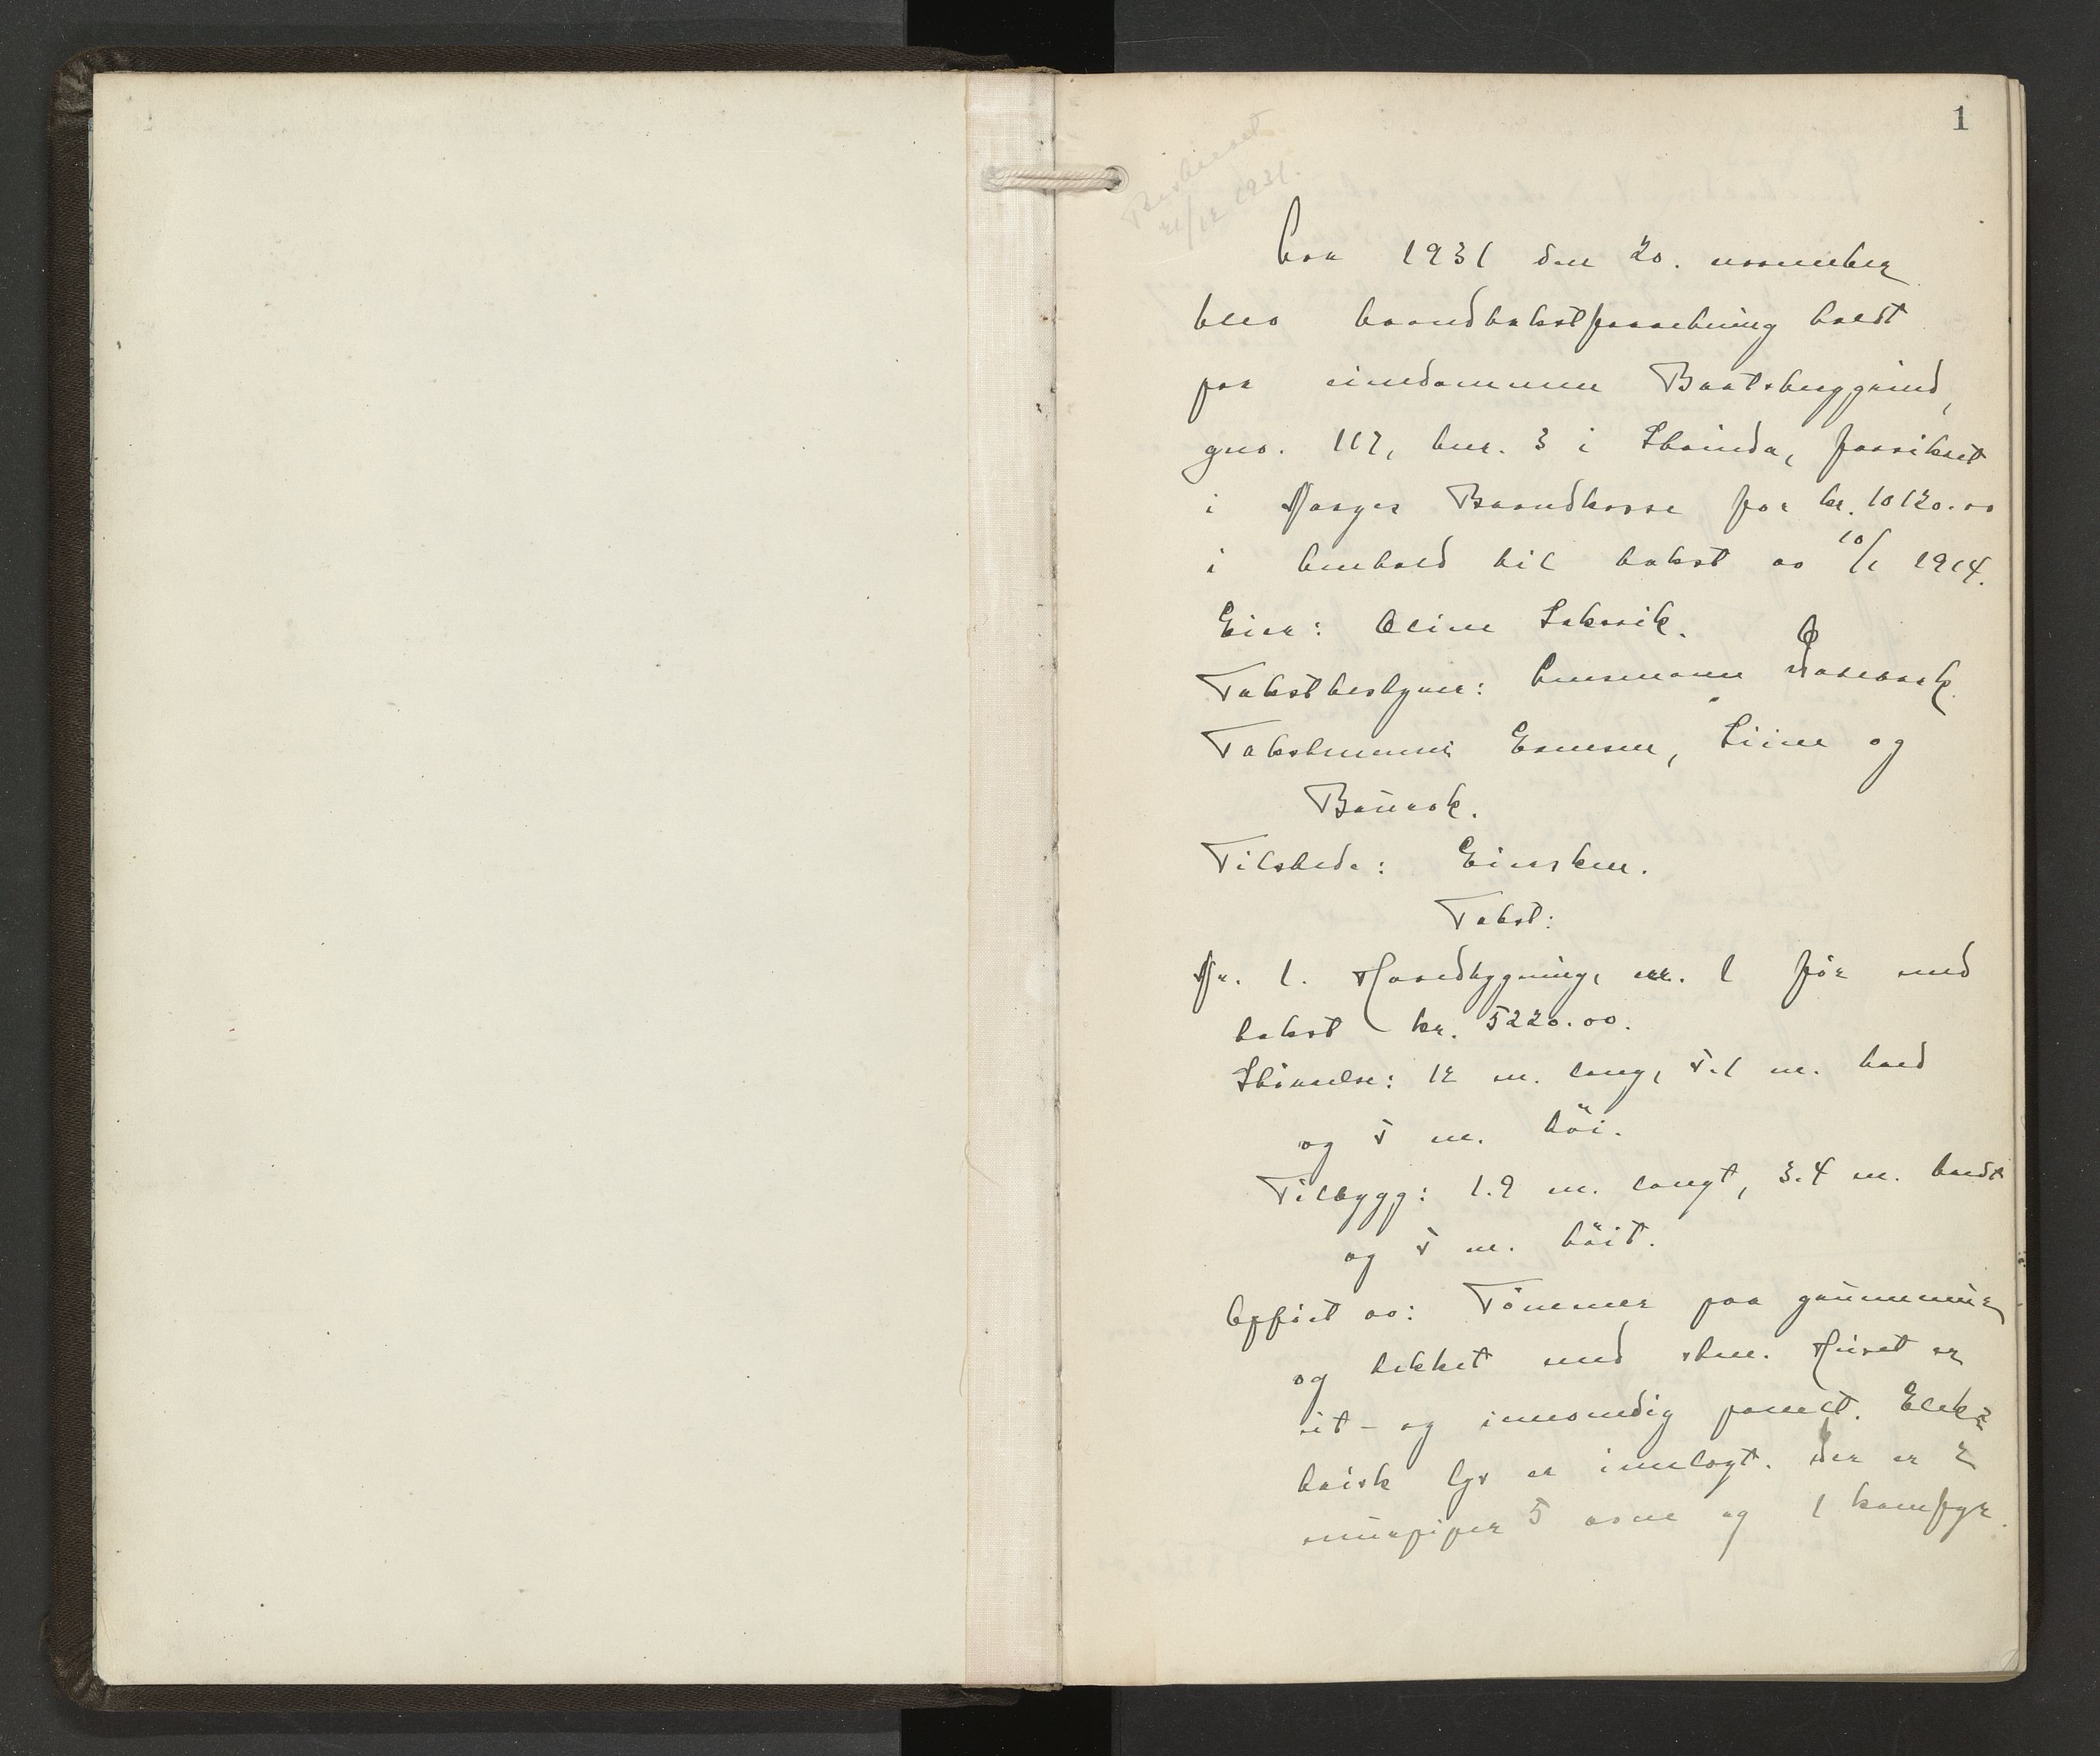 1
Beskrevet
21/12 1931.
Aar 1931 den 20. november
blev brandtakstforretning holdt
paa eiendommen Bratsberggrind,
gno. 117, bnr. 3 i Strinda, forsikret
i Norges Brandkasse for kr. 10120.00
i henhold til takst av 10/1 1914.
Eier: Oline Saksvik.
Takstbestyrer: Lensmann
Takstmenn: Evensen, Liine og
Brurok.
Tilstede: Eiersken.
Takst:
Nr. 1. Hovedbygning, nr. 1 før med
takst kr. 5220.00.
Størrelse: 12 m. lang, 5.1 m. bred
og 5 m. höi.
Tilbygg: 1.9 m. langt, 3.4 m. bredt
og 5 m. höit.
Opført av: Tömmer paa grunnmur
og tekket med sten. Huset er
ut- og innvendig panelt. Elek-
trisk lys er innlagt. Der er 2
murpiper 5 ovne og 1 komfyr.